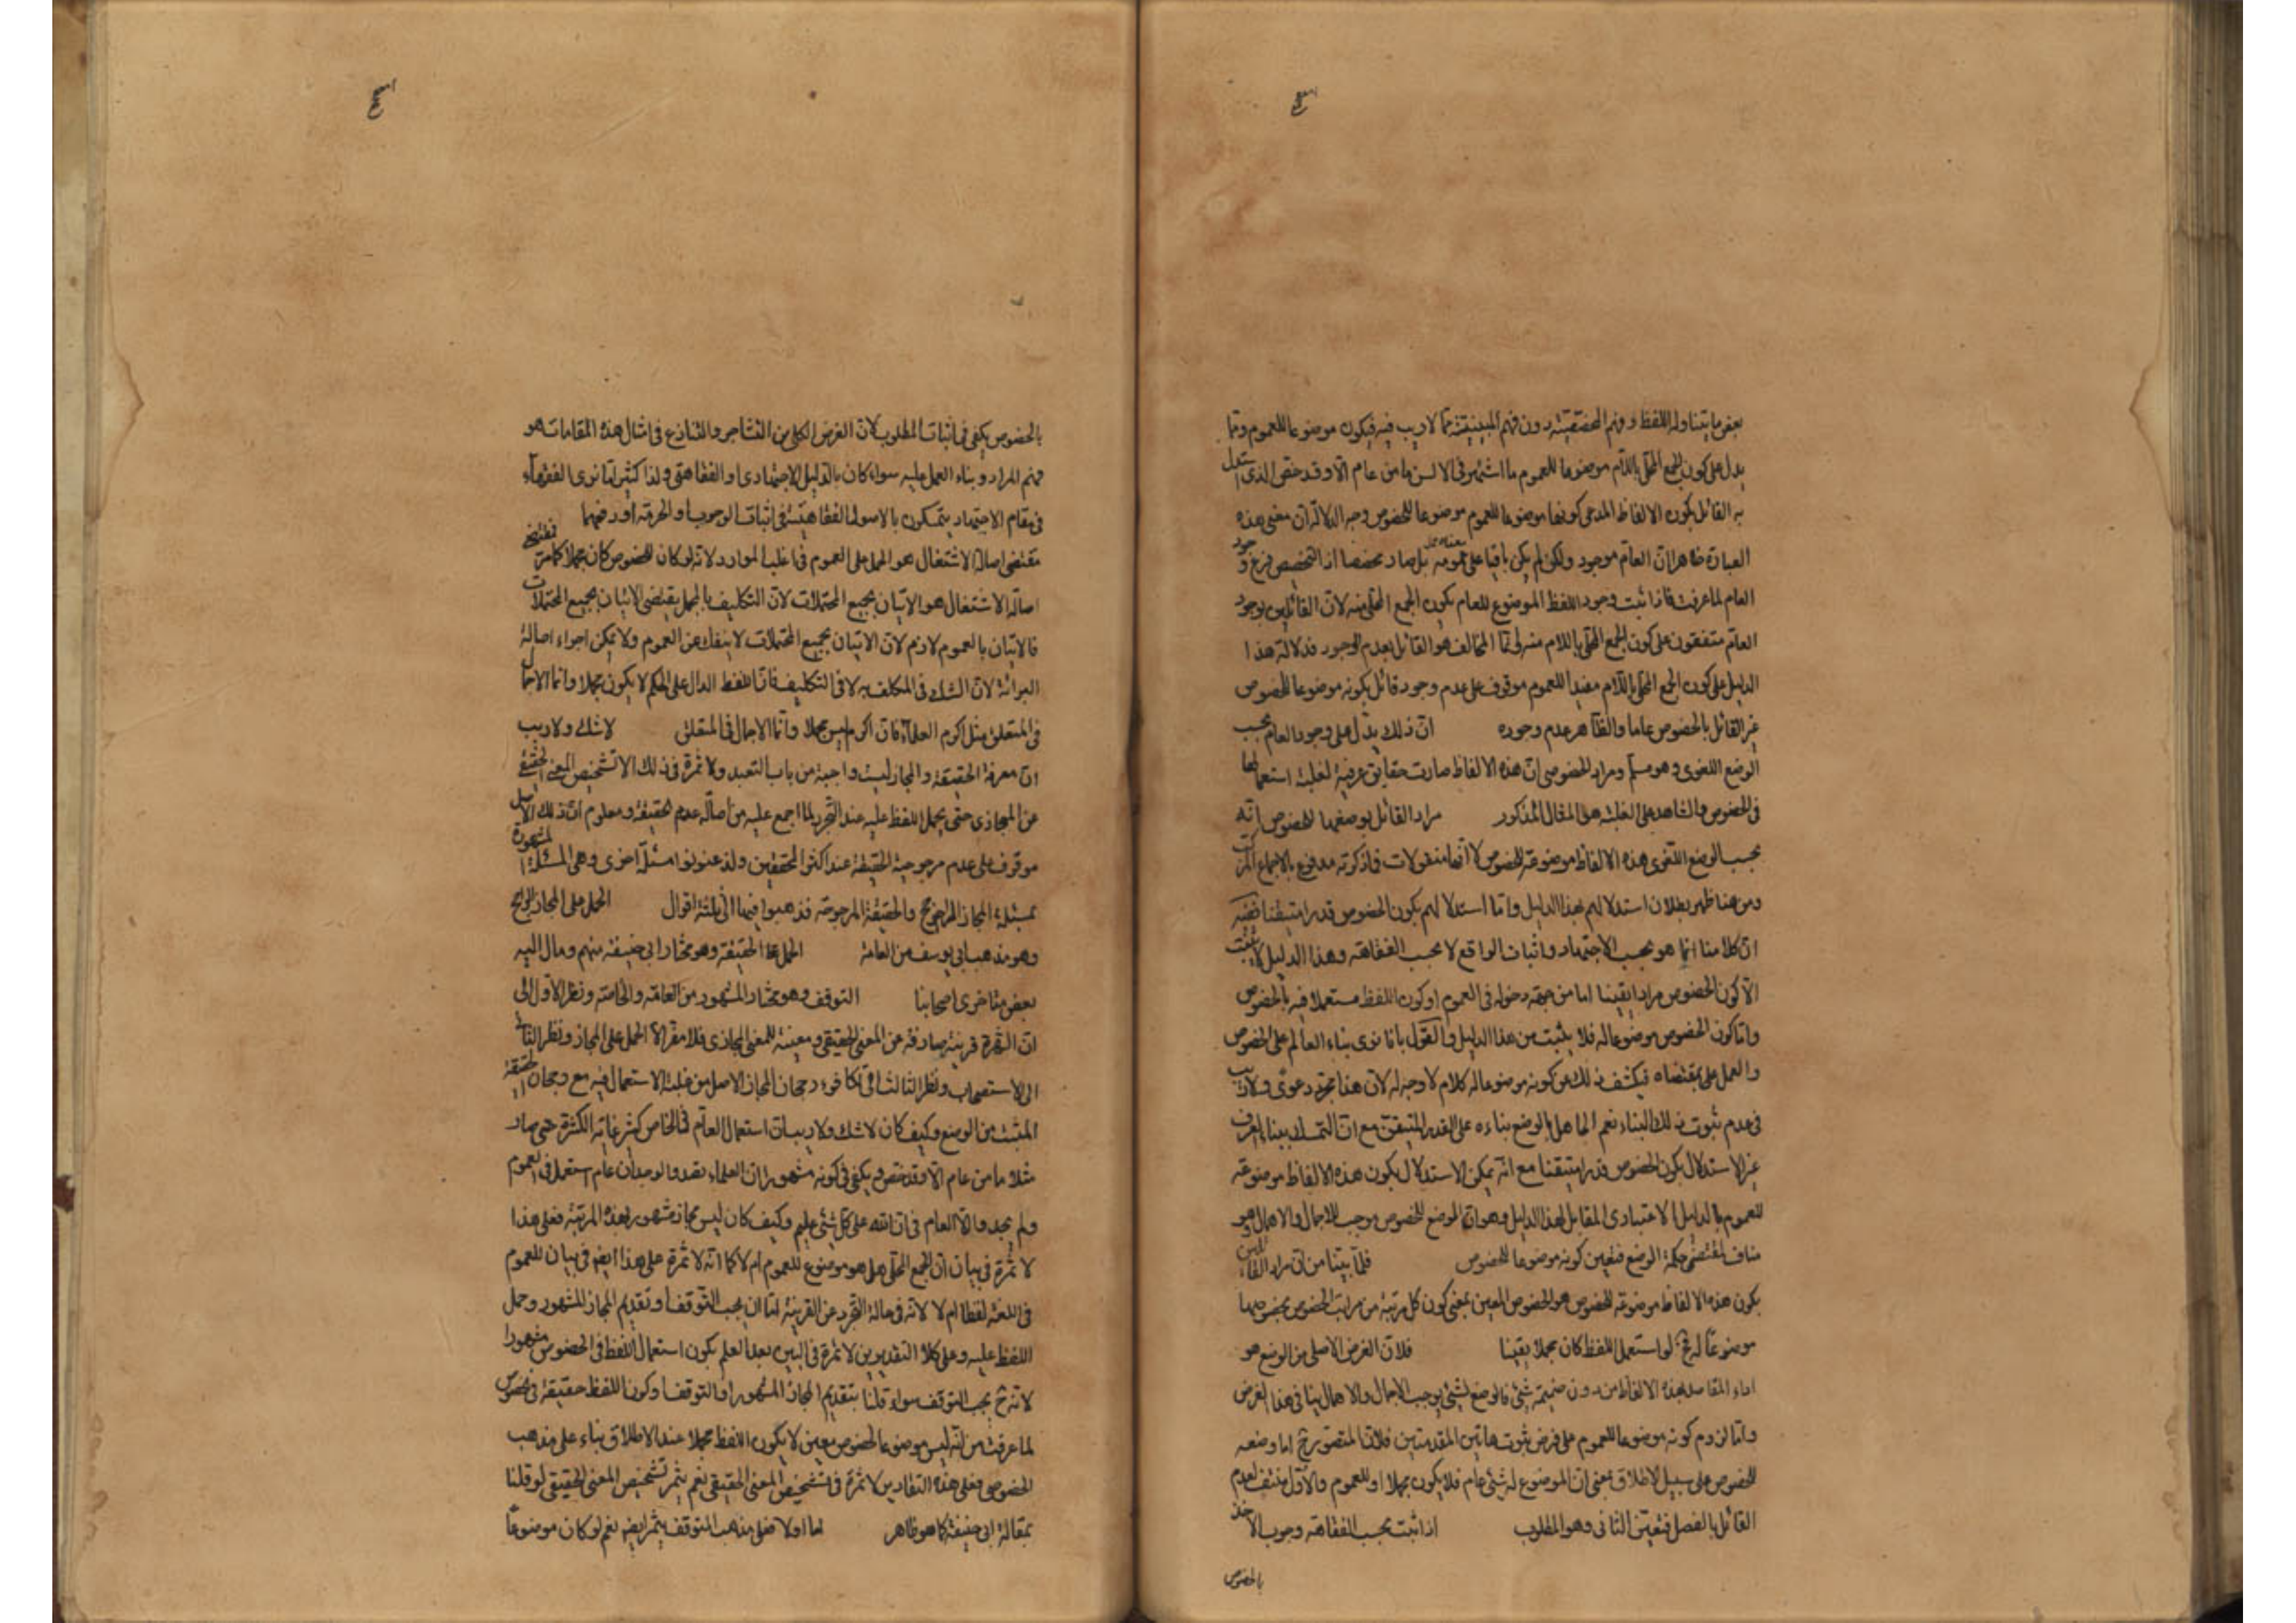 بعض ما يتناوله اللفظ وفهم الحقيقية دون فهم المبينية مما لا ريب فيه فيكون موضوعا للعموم ومما
يدل على كون الجمع المحلى باللام موضوعا للعموم ما اشتهر فى الالسن ما من عام الا وقد خص الذى استدل
به القائل بكون الالفاظ المدعى كونها موضوعا للعموم موضوعا للخصوص وجه الدلالة ان معنى هذه
العبارة ظاهرا ان العام موجود ولكن لم يكن باقيا على عمومه بل صار مخصصا اذ التخصيص فرع وجود
العام لما عرفت فاذا ثبت وجود اللفظ الموضوع للعام يكون الجمع المحلى منه لان القائلين بوجود
العام متفقون على كون الجمع المحلى باللام منه وانما المخالف هو القائل بعدم الوجود فدلالة هذا
الدليل على كون الجمع المحلى باللام مفيدا للعموم موقوف على عدم وجود قائل بكونه موضوعا للخصوص
غير القائل بالخصوص عاما والظاهر عدم وجوده ان ذلك يدل على وجود العام بحسب
الوضع اللغوى وهو مسلم ومراد الخصوصى ان هذه الالفاظ صارت حقايق عرفية لغلبة استعمالها
فى الخصوص والشاهد على الغلبة هو المثال المذكور مراد القائل بوضعها للخصوص انه
بحسب الوضع اللغوى هذه الالفاظ موضوعة للخصوص لا انها منقولات فما ذكرته مدفوع بالاجماع المركب
ومن هنا ظهر بطلان استدلالهم بهذا الدليل واما استدلالهم بكون الخصوص قدرا متيقنا ففيه
ان كلامنا انما هو بحسب الاجتهاد واثبات الواقع لا بحسب الفقاهة وهذا الدليل لا يثبت
الا كون الخصوص مرادا يقينا اما من جهة دخوله فى العموم او كون اللفظ مستعملا فيه بالخصوص
واما كون الخصوص موضوعا له فلا يثبت من هذا الدليل والقول بانا نرى بناء العالم على الخصوص
والعمل على مقتضاه فيكشف ذلك عن كونه موضوعا له كلام لا وجه له لان هذا مجرد دعوى ولا ريب
فى عدم ثبوت ذلك البناء نعم الجاهل بالوضع بناءه على القدر المتيقن مع ان التمسك ببناء العرف
غير الاستدلال بكون الخصوص قدرا متيقنا مع انه يمكن الاستدلال بكون هذه الالفاظ موضوعة
للعموم بالدليل الاعتبارى المقابل لهذا الدليل وهو ان الوضع للخصوص موجب للاجمال والاهمال وهو
مناف لمقتضى حكمة الوضع فتعين كونه موضوعا للخصوص فلما بينا من ان مراد القائلين
بكون هذه الالفاظ موضوعة للخصوص هو الخصوص المعين بمعنى كون كل مرتبة من مراتب الخصوص بخصوصها
موضوعا له فح لو استعمل اللفظ كان مجملا يقينا فلان الغرض الاصلى من الوضع هو
اداء المقاصد بهذه الالفاظ من دون ضميمة شئ فالوضع لشئ يوجب الاجمال والاهمال ينافى هذا الغرض
واما لزوم كونه موضوعا للعموم على فرض ثبوت هاتين المقدمتين فلان المتصور ح اما وضعه
للخصوص على سبيل الاطلاق بمعنى ان الموضوع له شئ عام فلا يكون مجملا او للعموم والاول منتف لعدم
القائل بالفصل فتعين الثانى وهو المطلوب اذا ثبت بحسب الفقاهة وجوب الاخذ
بالخصوص
بالخصوص يكفى فى اثبات المطلوب لان الغرض الكلى من التشاجر والتنازع فى امثال هذه المقامات هو
فهم المراد وبناء العمل عليه سواء كان بالدليل الاجتهادى او الفقاهتى ولذا كثيرا ما نرى الفقهاء
فى مقام الاجتهاد يتمسكون بالاصول الفقاهية فى اثبات الوجوب او الحرمة او رفعهما
مقتضى اصالة الاشتغال هو الحمل على العموم فى اغلب الموارد لانه لو كان للخصوص كان مجملا كما مر فمقتضى
اصالة الاشتغال هو الاتيان بجميع المحتملات لان التكليف بالمجمل يقتضى الاتيان بجميع المحتملات
فالاتيان بالعموم لازم لان الاتيان بجميع المحتملات لا ينفك عن العموم ولا يمكن اجراء اصالة
البرائة لان الشك فى المكلف به لا فى التكليف فان اللفظ الدال على الحكم لا يكون مجملا وانما الاجمال
فى المتعلق مثل اكرم العلماء فان اكرم ليس مجملا وانما الاجمال فى المتعلق لا شك ولا ريب
ان معرفة الحقيقة والمجاز ليست واجبة من باب التعبد ولا ثمرة فى ذلك الا تشخيص المعنى الحقيقى
عن المجازى حتى يحمل اللفظ عليه عند التجرد لما اجمع عليه من اصالة عدم الحقيقة ومعلوم ان ذلك الاصل
موقوف على عدم مرجوحية الحقيقة عند اكثر المحققين ولذا عنونوا مسئلة اخرى وهى المسئلة المشهورة
بمسئلة المجاز الراجح والحقيقة المرجوحة فذهبوا فيها الى ثلثة اقوال الحمل على المجاز الراجح
وهو مذهب ابى يوسف من العامة الحمل على الحقيقة وهو مختار ابى حنيفة منهم ومال اليه
بعض متاخرى اصحابنا التوقف وهو مختار المشهور من العامة والخاصة ونظر الاول الى
ان الشهرة قرينة صارفة عن المعنى الحقيقى ومعينة للمعنى المجازى فلا مفر الا الحمل على المجاز ونظر الثانى
الى الاستصحاب ونظر الثالث الى تكافوء رجحان المجاز الحاصل من غلبة الاستعمال فيه مع رجحان الحقيقة
المثبت من الوضع وكيف كان لا شك ولا ريب ان استعمال العام فى الخاص كثير غاية الكثرة حتى صار
مثلا ما من عام الا وقد خص ويكفى فى كونه مشهورا ان العلماء تفقدوا لوجدان عام استعمل فى العموم
ولم يجدوا الا العام فى ان الله على كل شئ عليم وكيف كان ليس مجاز مشهور بهذه المرتبة فعلى هذا
لا ثمرة فى بيان ان الجمع المحلى هل هو موضوع للعموم ام لا كما انه لا ثمرة على هذا ايض فى بيان للعموم
فى اللغة لفظا ام لا لانه فى حالة التجرد عن القرينة اما ان يجب التوقف او تقديم المجاز المشهور وحمل
اللفظ عليه وعلى كلا التقديرين لا ثمرة فى البين بعد العلم بكون استعمال اللفظ فى الخصوص مشهورا
لانه ح يجب التوقف سواء قلنا بتقديم المجاز المشهور او التوقف او كون اللفظ حقيقة فى الخصوص
لما عرفت من انه ليس موضوعا لخصوص معين لا يكون اللفظ مجملا عند الاطلاق بناء على مذهب
الخصوص فعلى هذه التقادير لا ثمرة فى تشخيص المعنى الحقيقى نعم يثمر تشخيص المعنى الحقيقى لو قلنا
بمقالة ابى حنيفة كما هو ظاهر اما اولا فعلى مذهب التوقف يثمر ايض نعم لو كان موضوعا